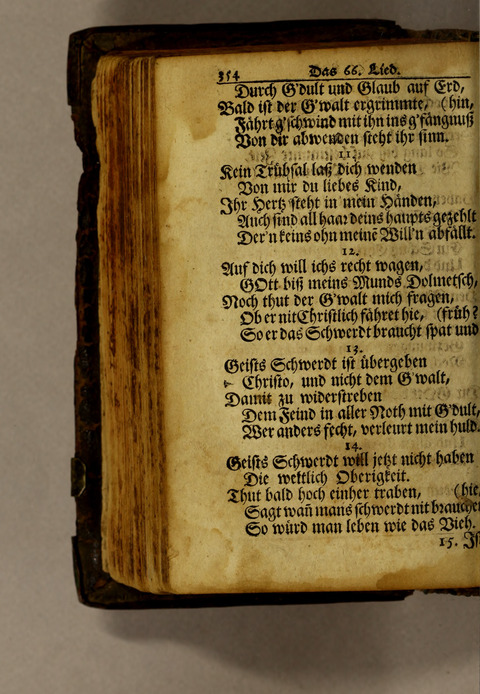 354 Das 66. Lied.
Durch G'dult und Glaub auf Erd,
Bald ist der G'walt ergrimmte, (hin,
Fährt g'schwind mit ihn ins g'fängnuß
Von dir abwenden steht ihr sinn.
11.
Kein Trübsal laß dich wenden
Von mir du liebes Kind,
Ihr Hertz steht in mein Händen,
Auch sind all haar deins haupts gezehlt
Der'n keins ohn meinē Will'n abfällt.
12.
Auf dich will ichs recht wagen,
GOtt biß meins Munds Dolmetsch,
Noch thut der G'walt mich fragen,
Ob er nit Christlich fähret hie, (früh?
So er das Schwerdt braucht spat und
13.
Geists Schwerdt ist übergeben
Christo, und nicht dem G'walt,
Damit zu widerstreben
Dem Feind in aller Noth mit G'dult,
Wer anders fecht, verleurt mein huld.
14.
Geists Schwerdt will jetzt nicht haben
Die weltlich Oberigkeit.
Thut bald hoch einher traben, (hie,
Sagt wañ mans schwerdt nit brauchet
So würd man leben wie das Vieh.
15.